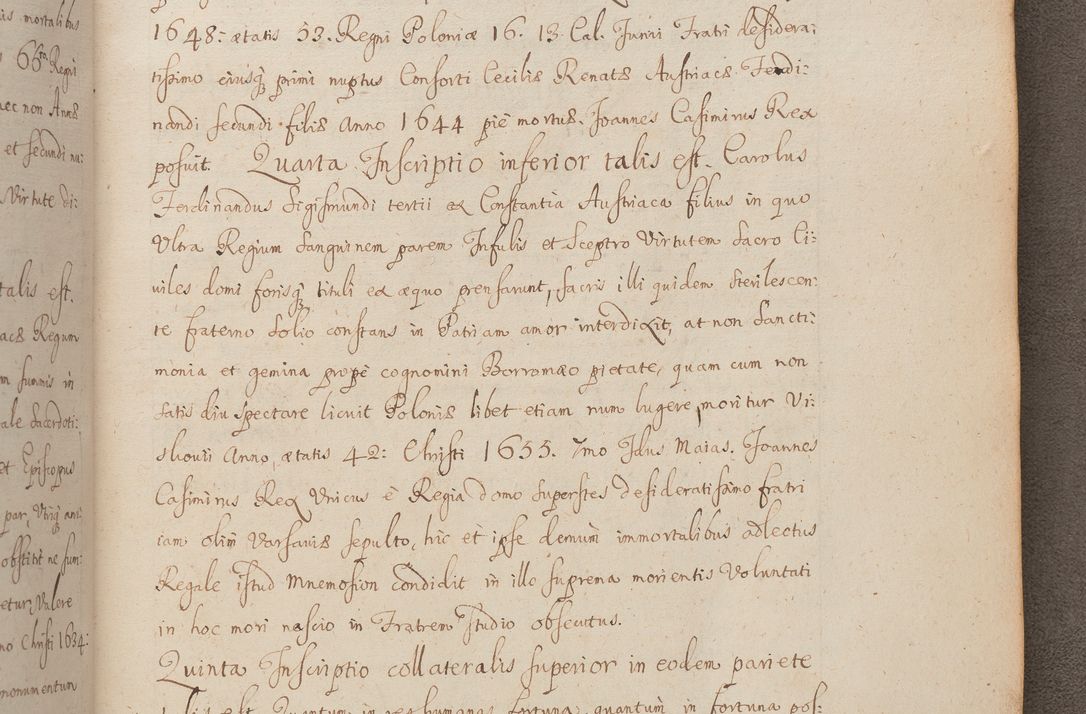 is mortalibus
66ta Regni
nec non Annæ
et secundi nu:
Virtute di:
talis est.
Regum
in
ale sacerdoti:
et Episcopus
par, Utriq
obstitit ne fun:
Valere
no Christi 1634:
monumentum
1648: ætatis 53. Regni Poloniæ 16. 13. Cal. Junii Fratri desidera:
tissimo eiusq primi nuptus Consorti Cecilæ Renatæ Austriacæ Ferdi:
nandi secundi filiæ Anno 1644 piè mortuæ. Joannes Casimirus Rex
posuit. Quarta Inscriptio inferior talis est. Carolus
Ferdinandus Sigismundi tertii ex Constantia Austriaca filius in quo
Ultra Regium sanguinem parem Infulis et Sceptro Virtutem sacro Ci:
viles domi forisq tituli ex æquo prensarunt, sacris illi quidem sterilescen:
te fraterno solio constans in Patriam amor interdixit, at non sancti:
monia et gemina propè cognomini Borromæo pietate, quam cum non
satis diu spectare licuit Polonis libet etiam num lugere, moritur Vi:
skovii Anno, ætatis 42: Christi 1655. 7mo Idus Maias. Joannes
Casimirus Rex Unicus è Regia domo superstes desideratissimo fratri
iam olim Varsaviæ sepulto, hic et ipse demum immortalibus adlectus
Regale istud Mnemosion condidit in illo suprema morientis Voluntati
in hoc mori nascio in Fratrem studio obsecutus.
Quinta Inscriptio collateralis superior in eodem pariete
talis est. Quantum in res humanas fortuna, quantum in fortuna pos: